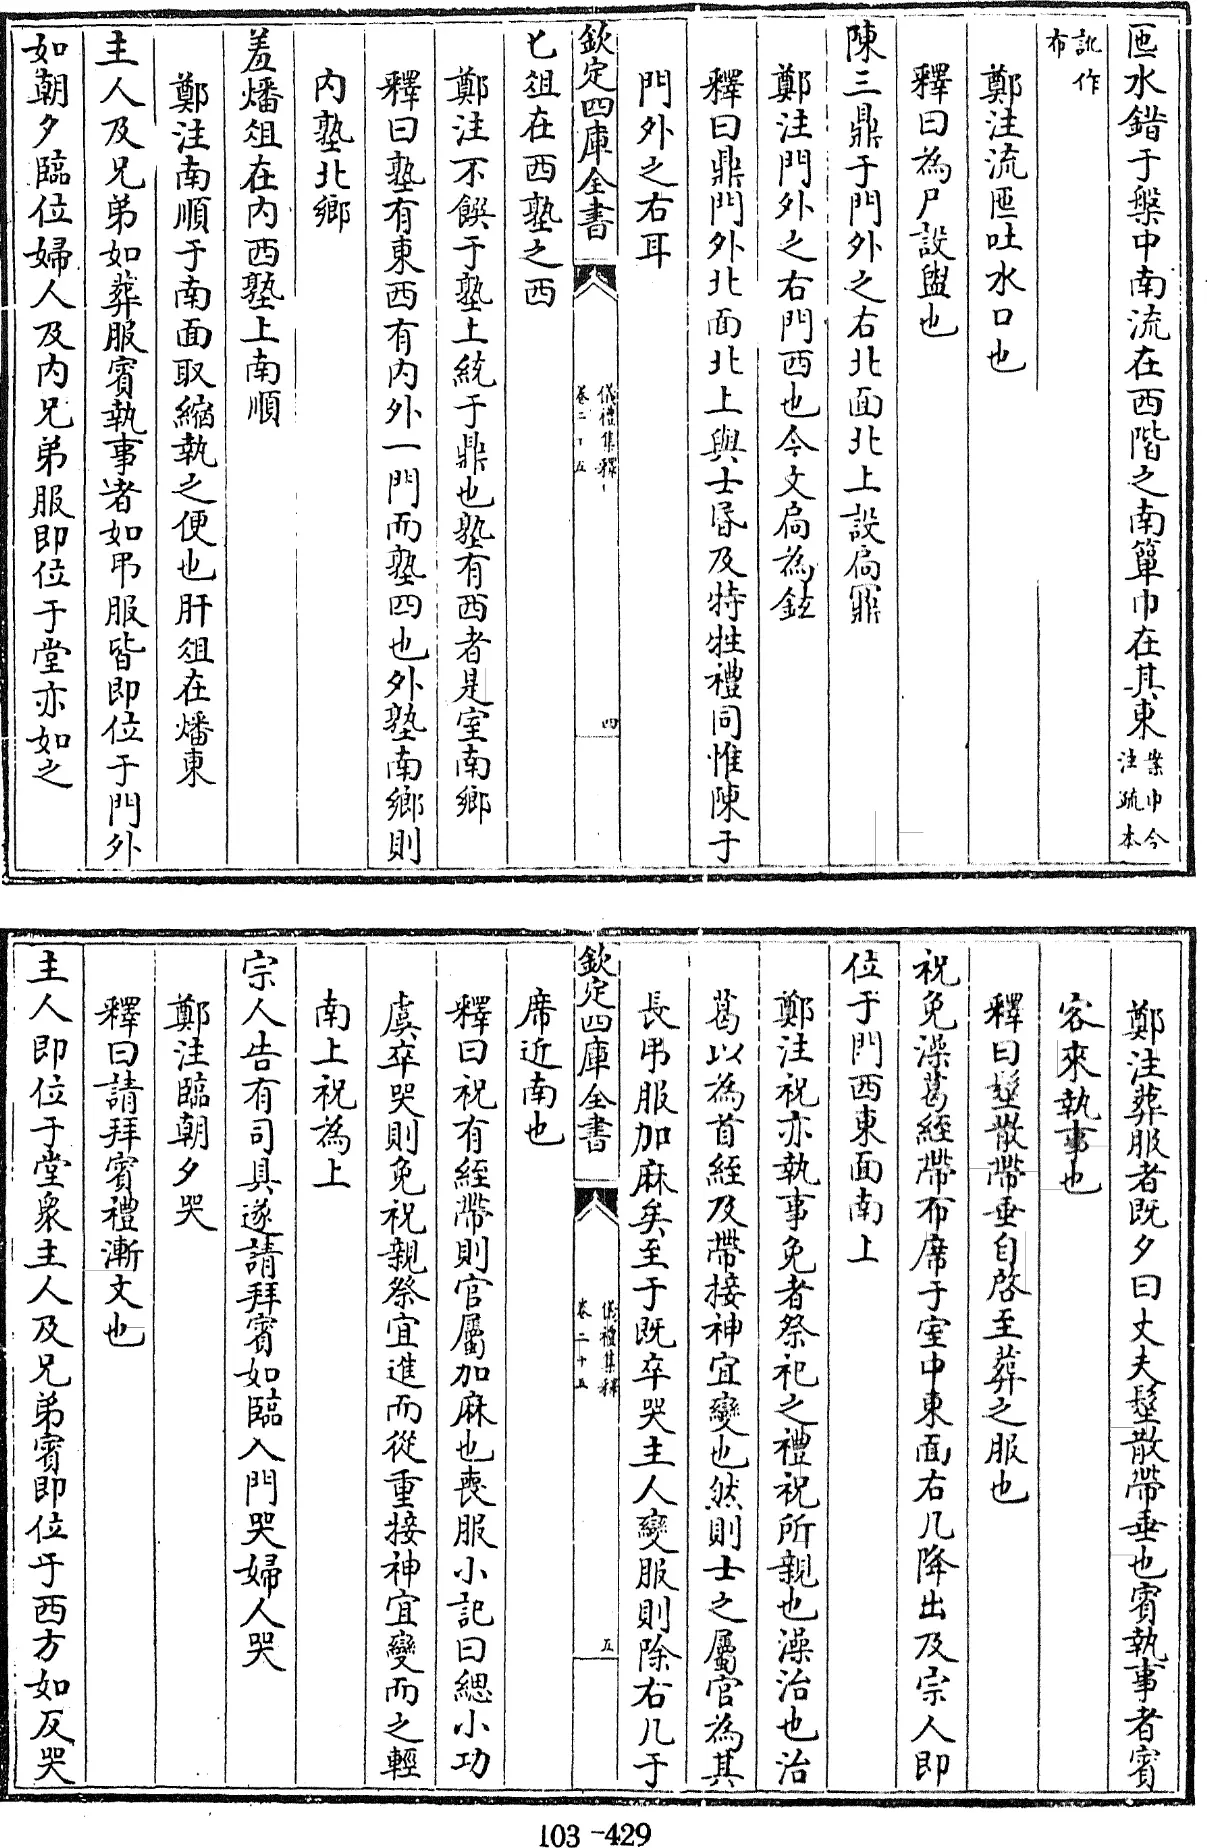 匜水錯于槃中南流在西階之南簞巾在其東案巾今注疏本
訛作布
鄭注流匜吐水口也
釋曰為尸設盥也
陳三鼎于門外之右北面北上設扃鼏
鄭注門外之右門西也今文扃為鉉
釋曰鼎門外北面北上與士昏及特牲禮同惟陳于
門外之右耳
欽定四庫全書
儀禮集釋
卷二十五
四
匕俎在西塾之西
鄭注不饌于塾上統于鼎也塾有西者是室南鄉
釋曰塾有東西有內外一門而塾四也外塾南鄉則
內塾北鄉
羞燔俎在內西塾上南順
鄭注南順于南面取縮執之便也肝俎在燔東
主人及兄弟如葬服賓執事者如弔服皆即位于門外
如朝夕臨位婦人及內兄弟服即位于堂亦如之
鄭注葬服者既夕曰丈夫髽散帶垂也賓執事者賓
客來執事也
釋曰髽散帶垂自啓至葬之服也
祝免澡葛絰帶布席于室中東面右几降出及宗人即
位于門西東面南上
鄭注祝亦執事免者祭祀之禮祝所親也澡治也治
葛以為首絰及帶接神宜變也然則士之屬官為其
長弔服加麻矣至于既卒哭主人變服則除右几于
欽定四庫全書
儀禮集釋
卷二十五
五
席近南也
釋曰祝有絰帶則官屬加麻也喪服小記曰緦小功
虞卒哭則免祝親祭宜進而從重接神宜變而之輕
南上祝為上
宗人告有司具遂請拜賓如臨入門哭婦人哭
鄭注臨朝夕哭
釋曰請拜賓禮漸文也
主人即位于堂衆主人及兄弟賓即位于西方如反哭
103-429